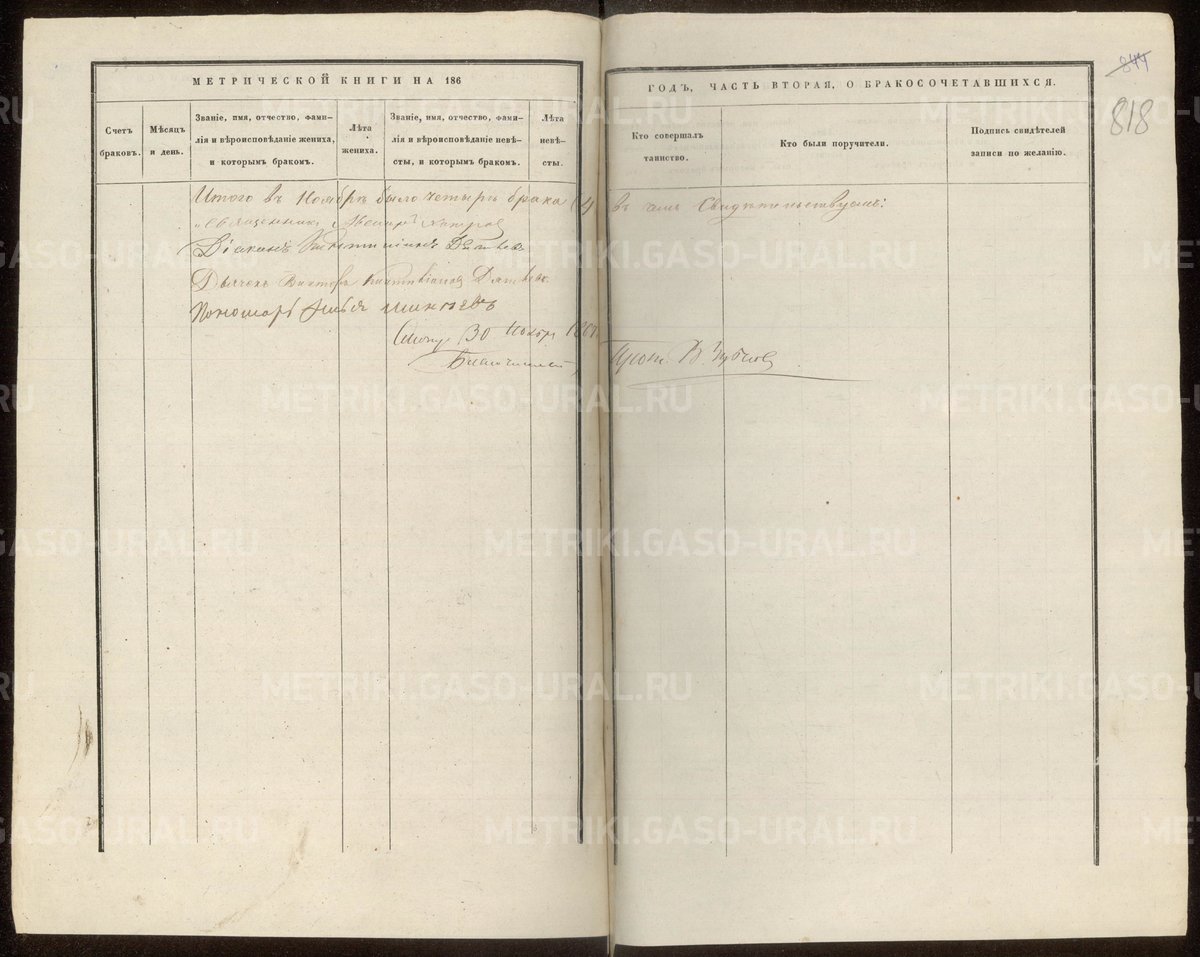 МЕТРИЧЕСКОЙ КНИГИ НА 186
Счетъ браковъ.
Мѣсяцъ и день.
Званіе, имя, отчество, фами-
лія и вѣроисповѣданіе жениха,
и которымъ бракомъ.
Лѣта жениха.
Званіе, имя, отчество, фами-
лія и вѣроисповѣданіе невѣ-
сты, и которымъ бракомъ.
Лѣта невѣ-
сты.
ГОДЪ, ЧАСТЬ ВТОРАЯ, О БРАКОСОЧЕТАВШИХСЯ.
Кто совершалъ
таинство.
Кто были поручители.
Подпись свидѣтелей
записи по желанію.
844
818
Итого въ Ноябрѣ было четыре брака (4) въ чемъ Свидѣтельствуемъ:
Священникъ
Діаконъ
Дьячекъ Викторъ
Пономарь Илья
30 Ноября
Благочинный Прот. В.
METRIKI.GASO-URAL.RU